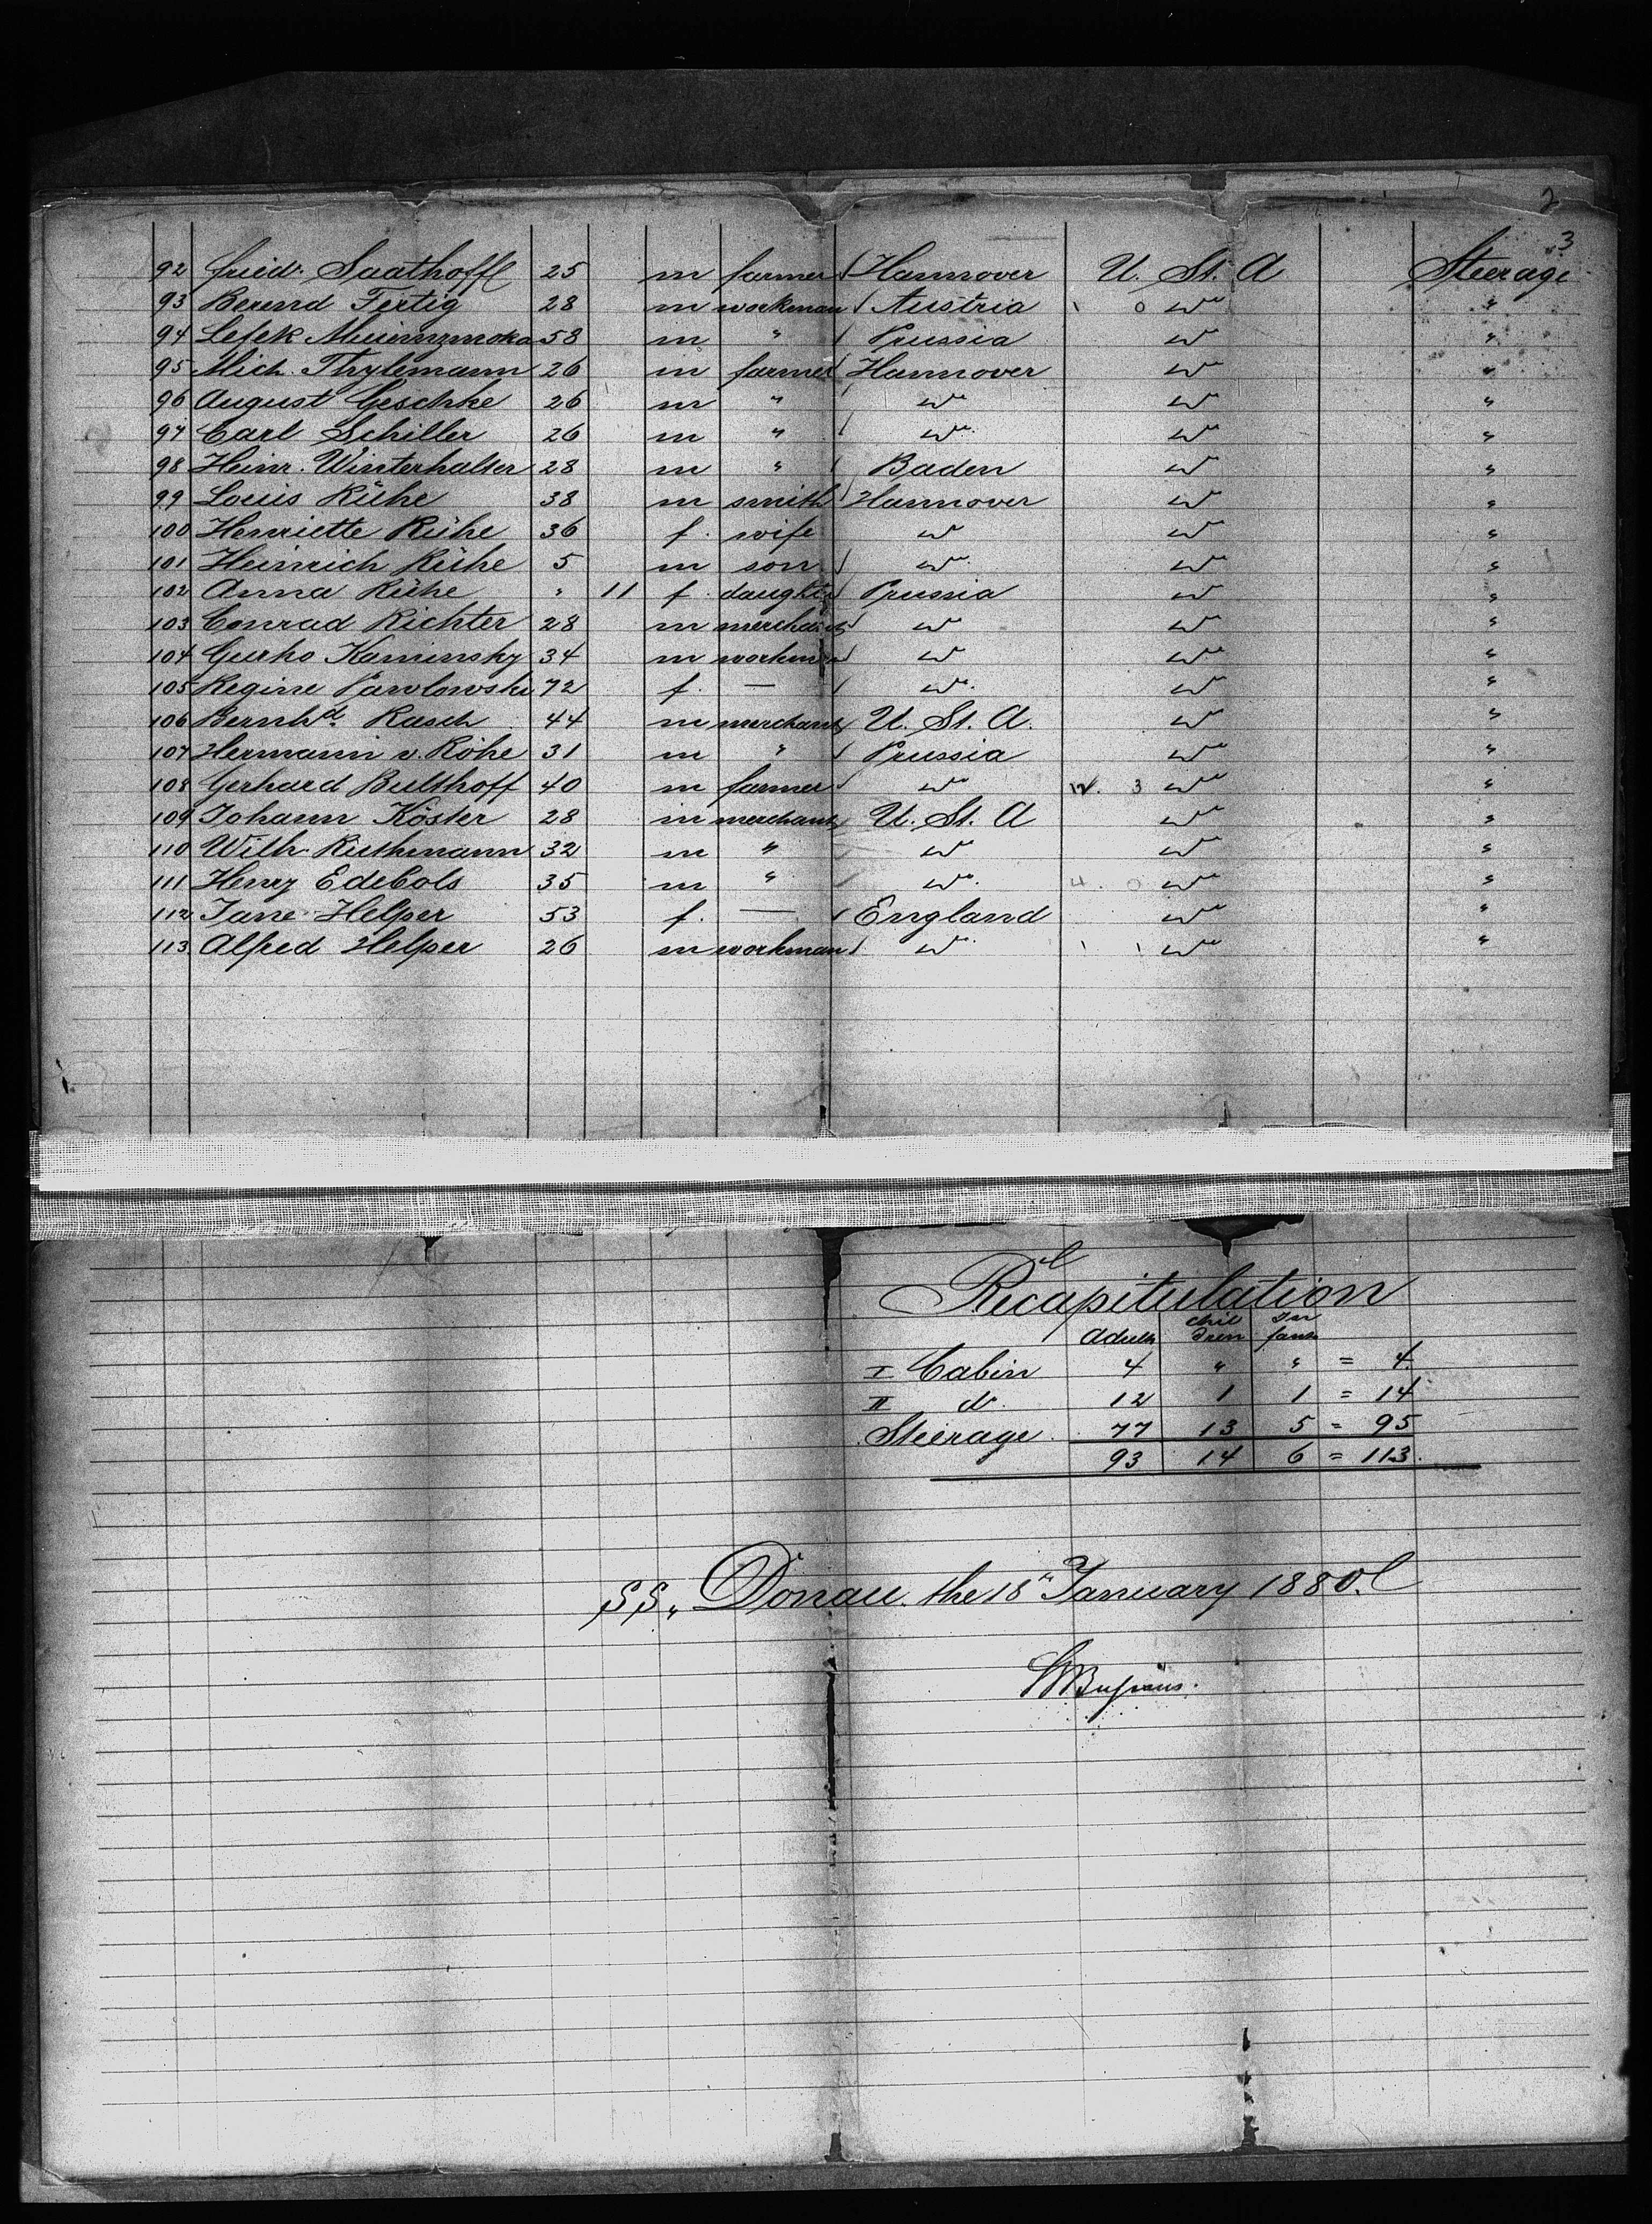 2
3
92 Fried. Saathoff 25 m farmer Hannover U. St. A Steerage
93 Berend Fertig 28 m workman Austria do "
94 Lefek 58 m " Prussia do "
95 Mich. Thylemann 26 m farmer Hannover do "
96 August Geschke 26 m " do do "
97 Carl Schiller 26 m " do do "
98 Heinr. Winterhalter 28 m " Baden do "
99 Louis Rühe 38 m smith Hannover do "
100 Henriette Rühe 36 f. wife do do "
101 Heinrich Rühe 5 m son do do "
102 Anna Rühe " 11 f. daughter Prussia do "
103 Conrad Richter 28 m merchant do do "
104 Kaminsky 34 m workman do do "
105 Regine Pawlowski 72 f. — do do "
106 Bernhd. Rasch 44 m merchant U. St. A. do "
107 Hermann v. Röhe 31 m " Prussia do "
108 Gerhard Bulthoff 40 m farmer do do "
109 Johann Köster 28 m merchant U. St. A do "
110 Wilh. Ruthmann 32 m " do do "
111 Henry Edebols 35 m " do do "
112 Jane Helper 53 f. — England do "
113 Alfred Helper 26 m workman do do "
Recapitulation
Adults Chil In
dren fants
I Cabin 4 " " = 4
II do. 12 1 1 = 14
Steerage 77 13 5 = 95
93 14 6 = 113.
SS. Donau. the 18th January 1880.